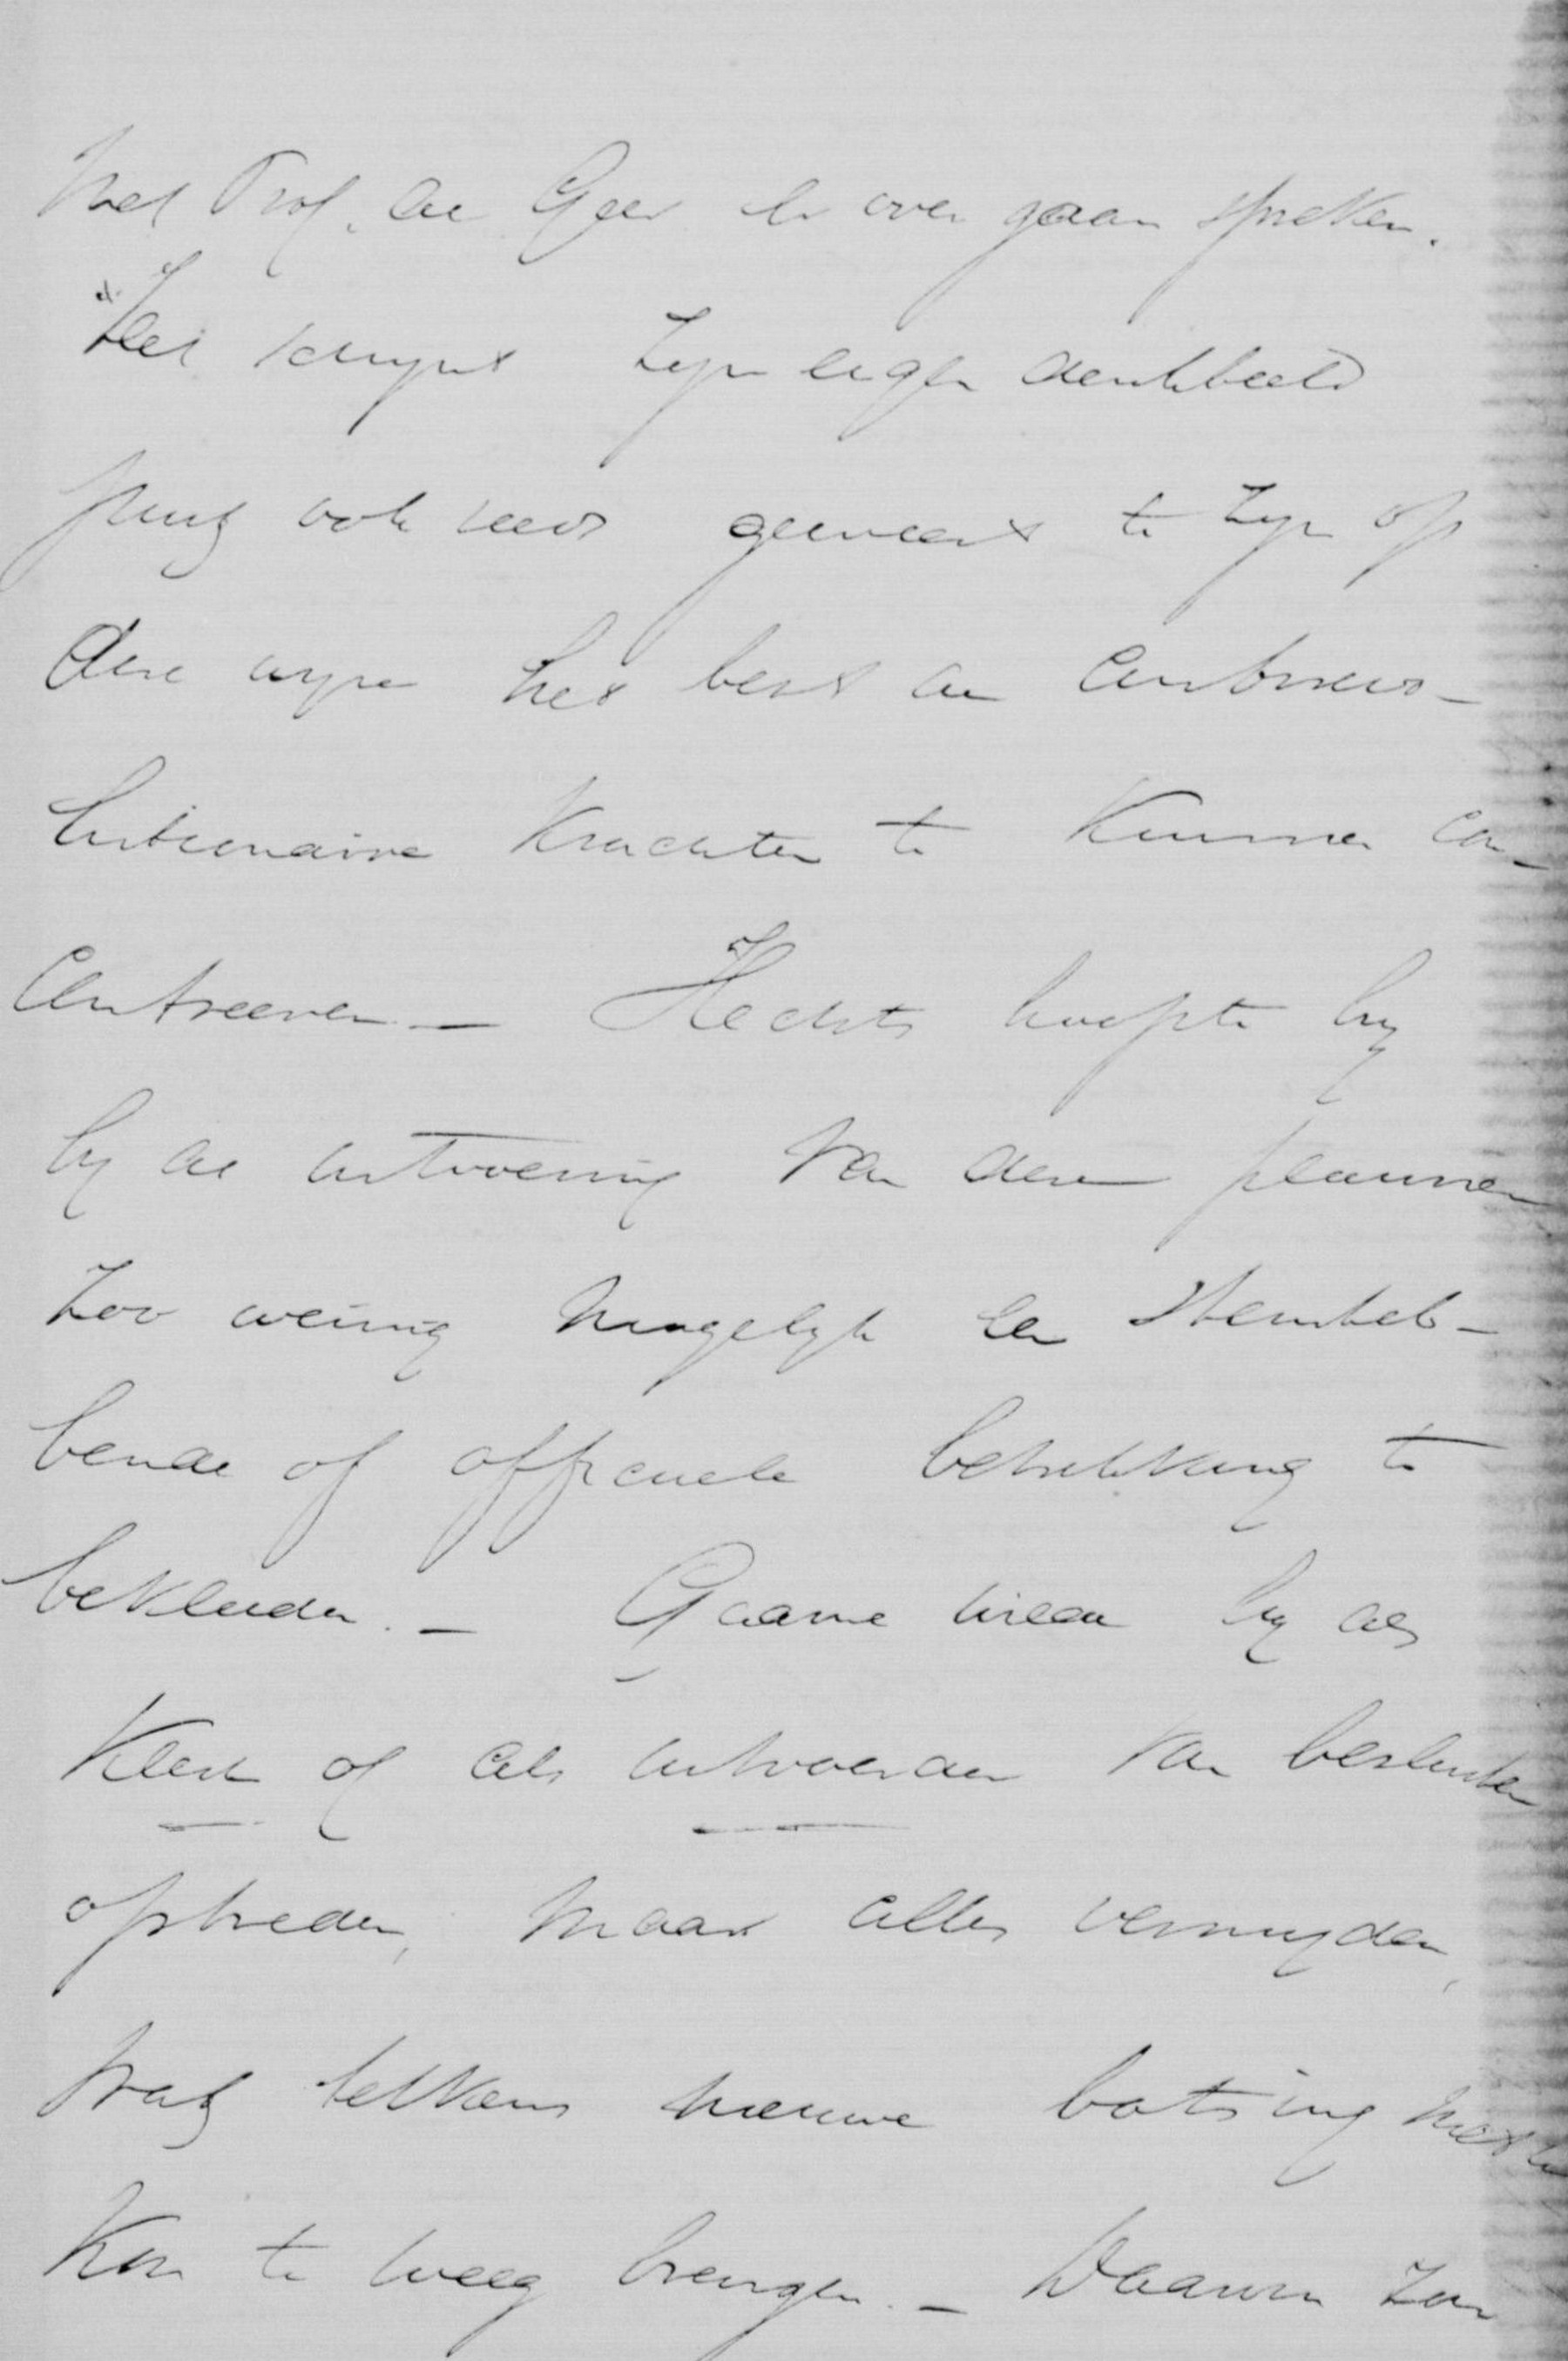 met Prof. de Geer er over gaan spreken.
Het schynt zyn eigen denkbeeld
juist ook reeds geweest te zyn op
deze wyze het best de Contrarevo-
lutionaire Krachten te Kunnen con-
Centreeren — Slechts hoopte hy
by de uitvoering van deze plannen
Zoo weinig mogelyk een Stemheb-
bende of officieele betrekking te
bekleeden. — Gaarne wilde hy als
Klerk of als uitvoerder van besluiten
optreden, maar alles vermyden,
wat telkens nieuwe botsing
Kon te weeg brengen. — Daarom zou